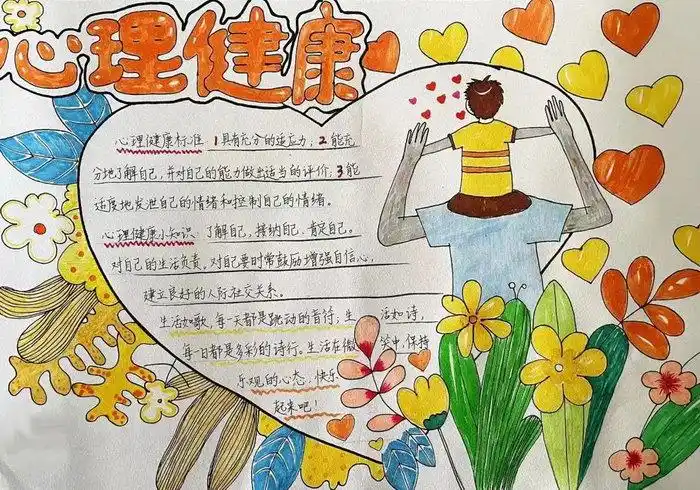 心理健康
心理健康标准 1具有充分的适应力；2能充
分地了解自己，并对自己的能力做出适当的评价；3能
适度地发泄自己的情绪和控制自己的情绪。
心理健康小知识 了解自己，接纳自己，肯定自己。
对自己的生活负责。对自己要时常鼓励增强自信心，
建立良好的人际社交关系。
生活如歌，每一天都是跳动的音符；生活如诗，
每一日都是多彩的诗行。生活在微笑中，保持
乐观的心态，快乐
起来吧！